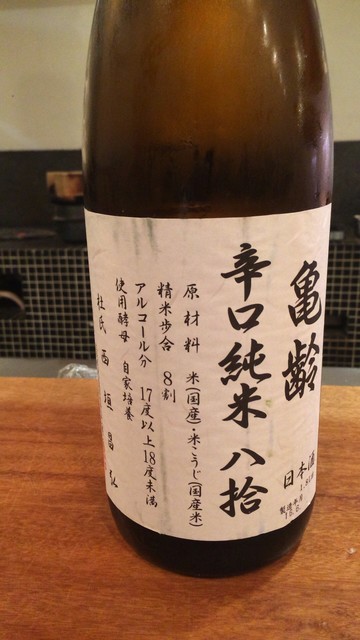 亀齢
日本酒
製造年月
辛口純米 八拾
原材料 米(国産)・米こうじ(国産米)
精米歩合 8割
アルコール分 17度以上18度未満
使用酵母 自家培養
杜氏 西垣昌弘